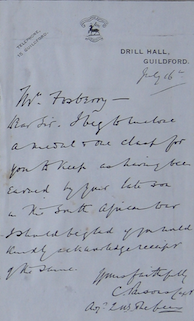 TELEPHONE,
GUILDFORD.
DRILL HALL,
GUILDFORD.
July 16th
Mr. Fosberry —
Dear Sir. I beg to enclose
a medal & one clasp for
you to keep as having been
earned by your late son
in the South African War
I should be glad if you would
kindly acknowledge receipt
of the same.
Yours faithfully
Capt